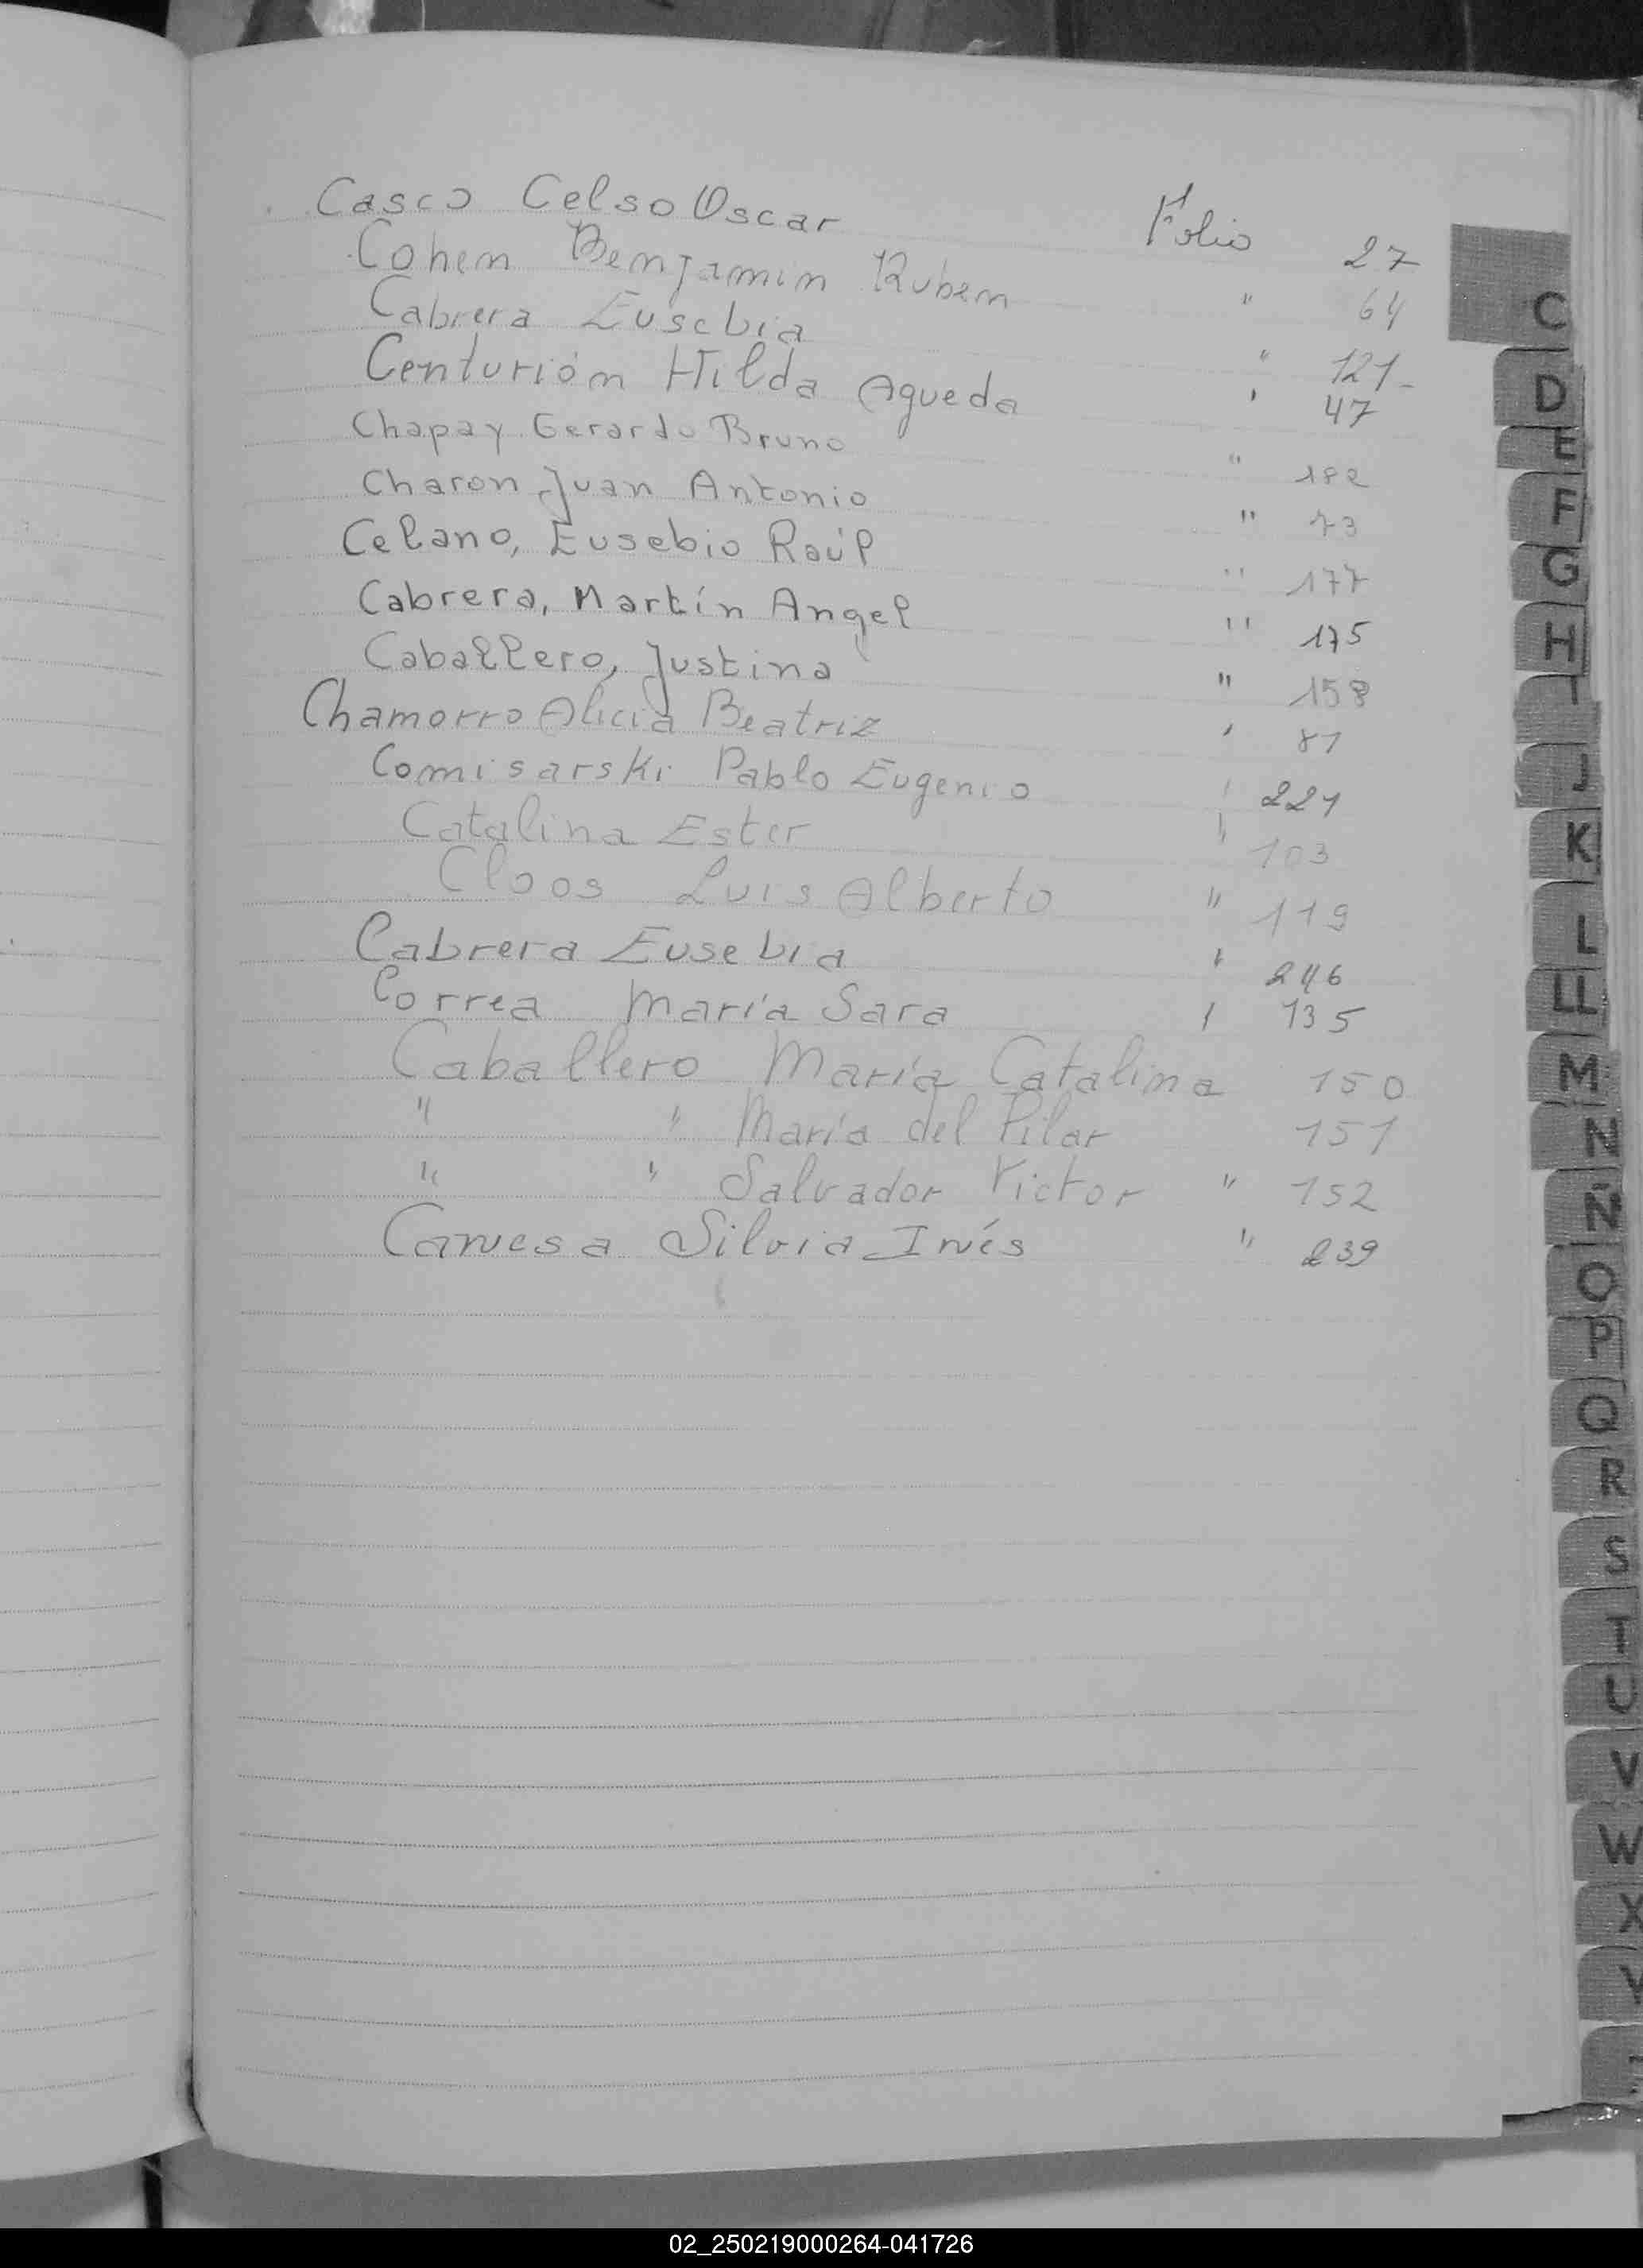 Casco Celso Oscar Folio 27
Cohen Benjamin Ruben " 64
Cabrera Eusebia " 121-
Centurión Hilda Agueda " 47
Chapay Gerardo Bruno " 182
Charon Juan Antonio " 73
Celano, Eusebio Raúl " 177
Cabrera, Martín Angel " 175
Caballero, Justina " 158
Chamorro Alicia Beatriz " 81
Comisarski Pablo Eugenio " 221
Catalina Ester " 103
Cloos Luis Alberto " 119
Cabrera Eusebia " 246
Correa María Sara " 135
Caballero María Catalina 150
" " María del Pilar 151
" " Salvador Victor " 152
Canesa Silvia Inés " 239
C
D
E
F
G
H
I
J
K
L
LL
M
N
Ñ
O
P
Q
R
S
T
U
V
W
X
Y
02_250219000264-041726